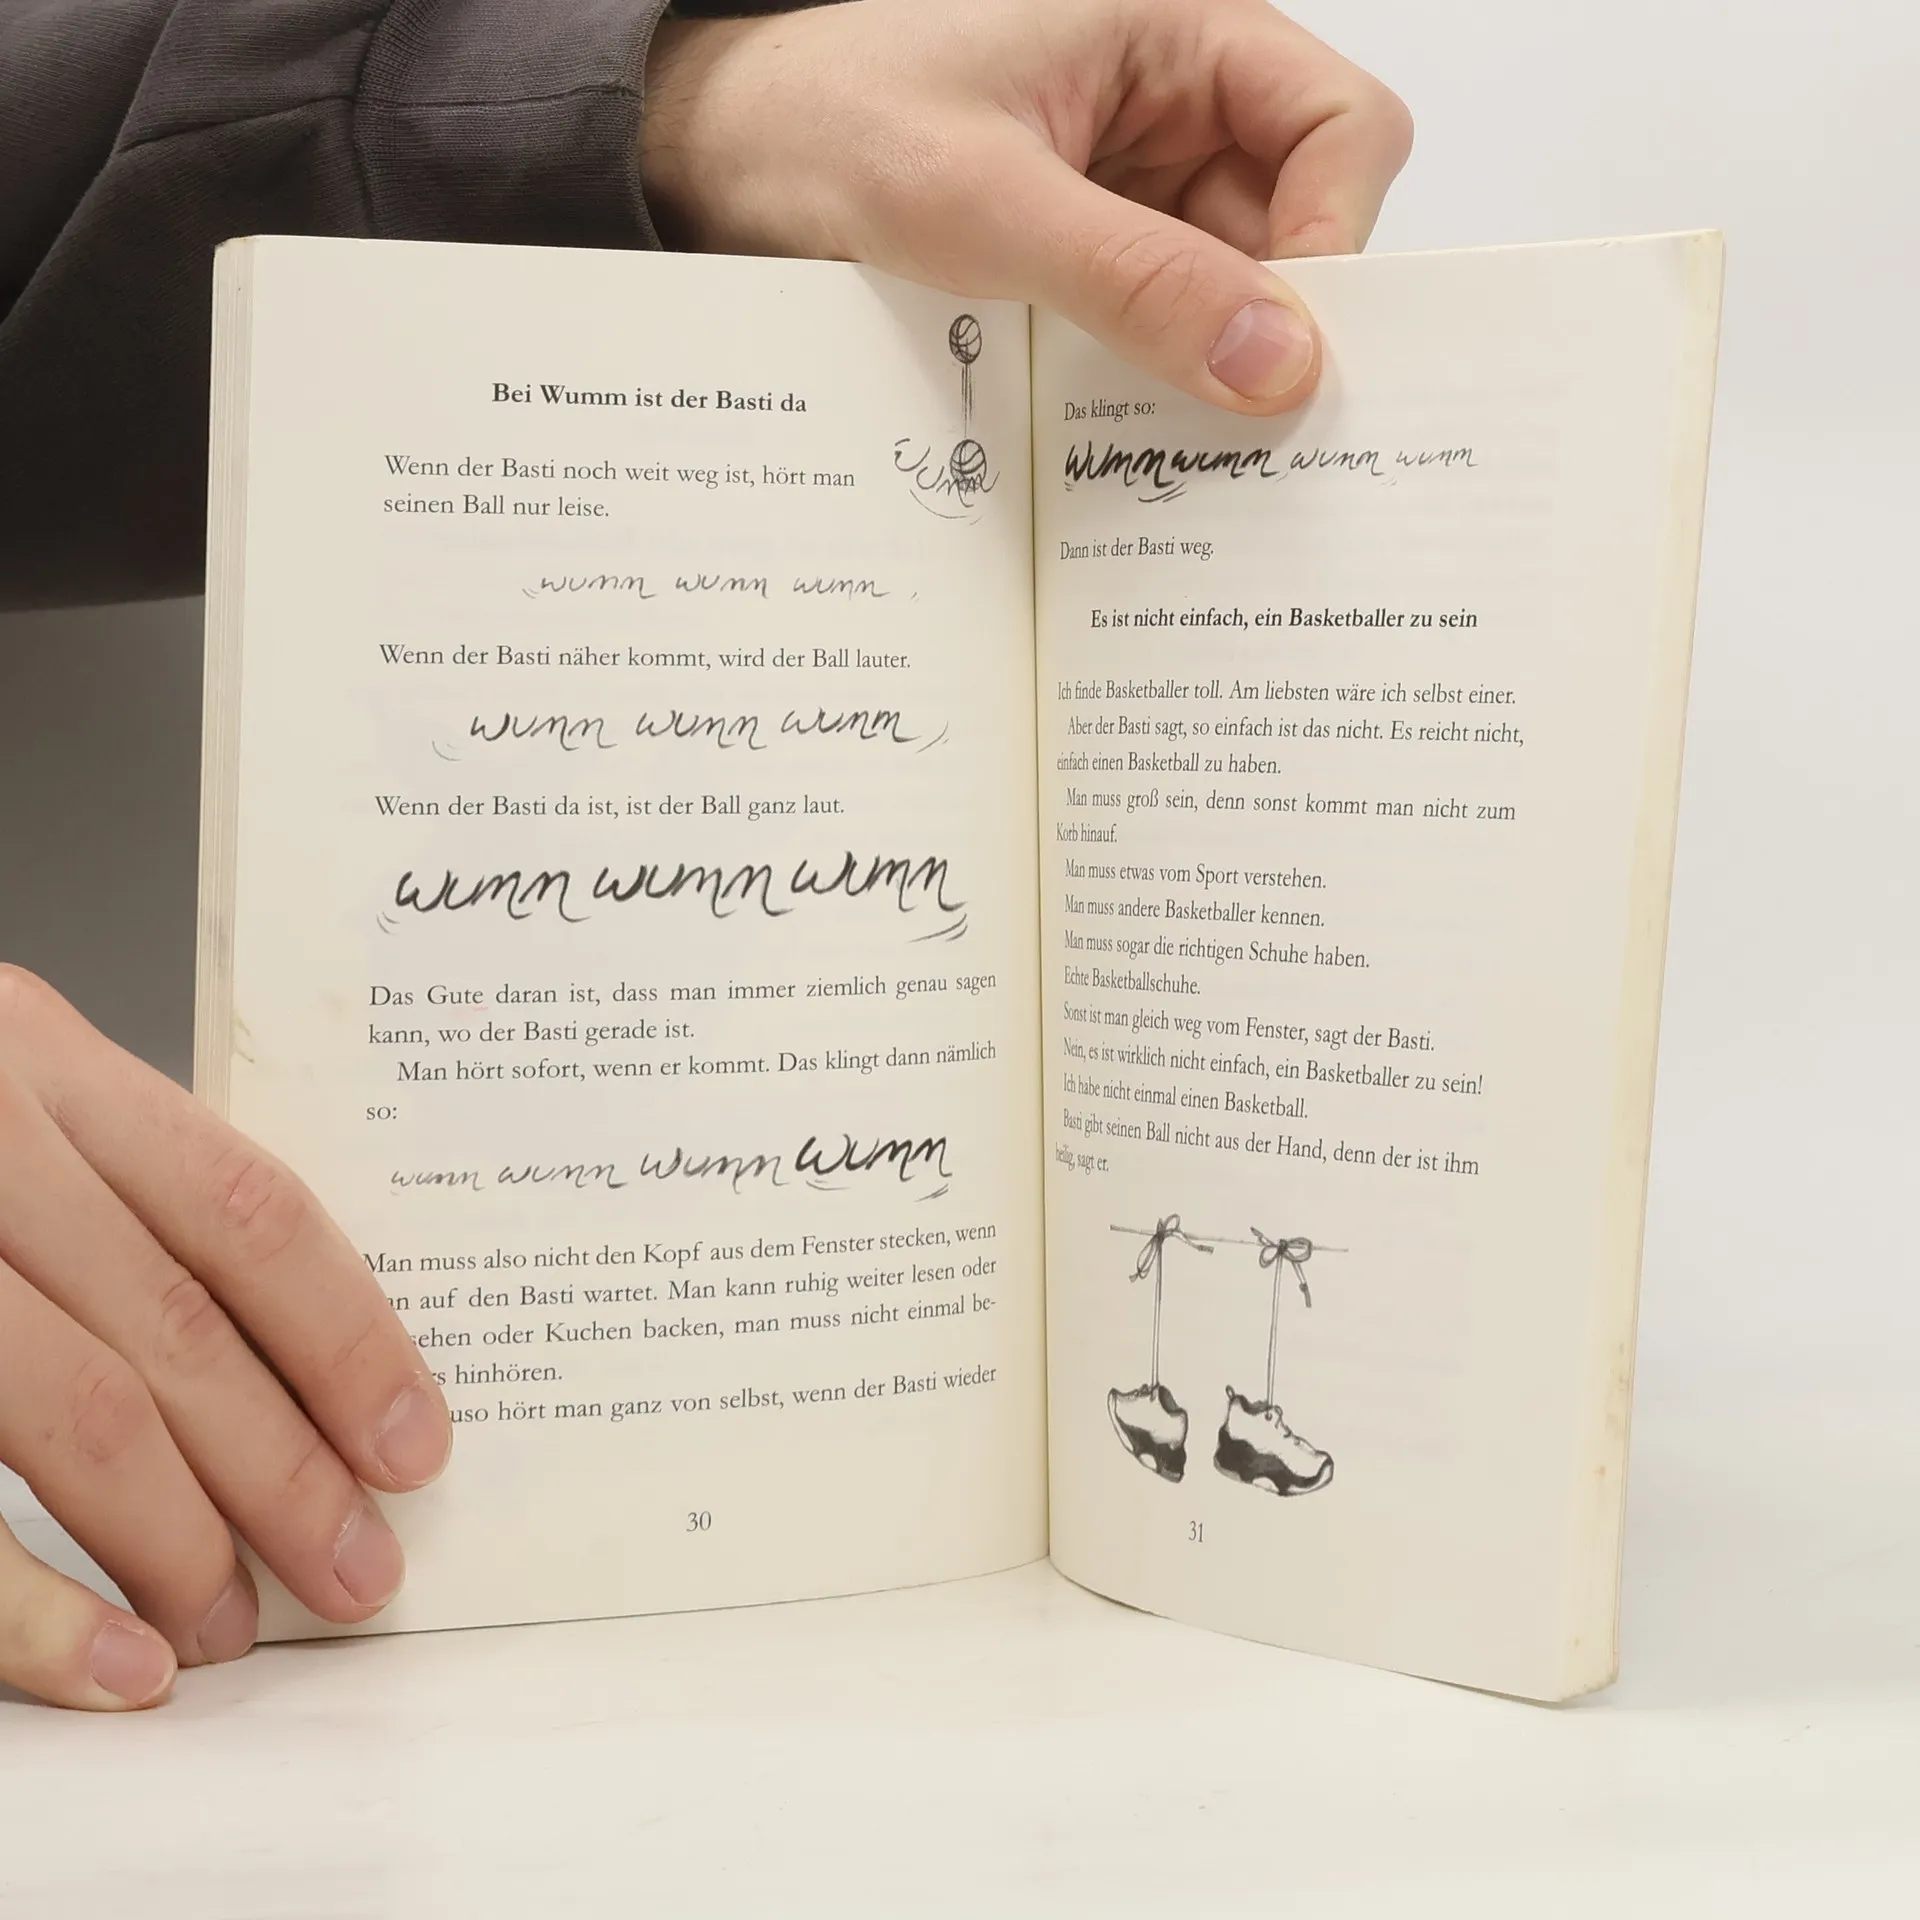 Bei Wumm ist der Basti da
Wenn der Basti noch weit weg ist, hört man
seinen Ball nur leise.
wumm wumm wumm
Wenn der Basti näher kommt, wird der Ball lauter.
wumm wumm wumm
Wenn der Basti da ist, ist der Ball ganz laut.
wumm wumm wumm
Das Gute daran ist, dass man immer ziemlich genau sagen
kann, wo der Basti gerade ist.
Man hört sofort, wenn er kommt. Das klingt dann nämlich
so:
wumm wumm wumm wumm
Man muss also nicht den Kopf aus dem Fenster stecken, wenn
auf den Basti wartet. Man kann ruhig weiter lesen oder
sehen oder Kuchen backen, man muss nicht einmal be-
hinhören.
hört man ganz von selbst, wenn der Basti wieder
30
Wumm
Das klingt so:
wumm wumm wumm wumm
Dann ist der Basti weg.
Es ist nicht einfach, ein Basketballer zu sein
Ich finde Basketballer toll. Am liebsten wäre ich selbst einer.
Aber der Basti sagt, so einfach ist das nicht. Es reicht nicht,
einfach einen Basketball zu haben.
Man muss groß sein, denn sonst kommt man nicht zum
Korb hinauf.
Man muss etwas vom Sport verstehen.
Man muss andere Basketballer kennen.
Man muss sogar die richtigen Schuhe haben.
Echte Basketballschuhe.
Sonst ist man gleich weg vom Fenster, sagt der Basti.
Nein, es ist wirklich nicht einfach, ein Basketballer zu sein!
Ich habe nicht einmal einen Basketball.
Basti gibt seinen Ball nicht aus der Hand, denn der ist ihm
heilig, sagt er.
31